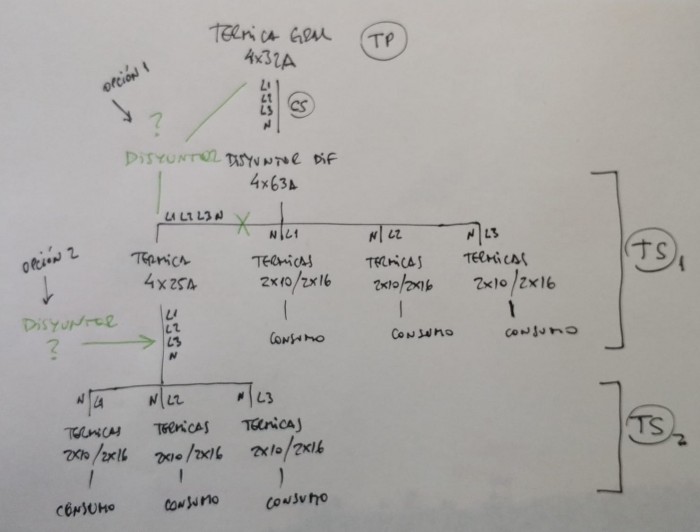 TERMICA GRAL
4x32A
TP
L1
L2
L3
N
CS
OPCIÓN 1
?
DISYUNTOR
DISYUNTOR DIF
4x63A
L1 L2 L3 N
N L1
N L2
N L3
TERMICA
4x25A
TERMICAS
2x10/2x16
TERMICAS
2x10/2x16
TERMICAS
2x10/2x16
CONSUMO
CONSUMO
CONSUMO
TS1
OPCIÓN 2
DISYUNTOR
?
L1
L2
L3
N
N L1
N L2
N L3
TERMICAS
2x10/2x16
TERMICAS
2x10/2x16
TERMICAS
2x10/2x16
CONSUMO
CONSUMO
CONSUMO
TS2